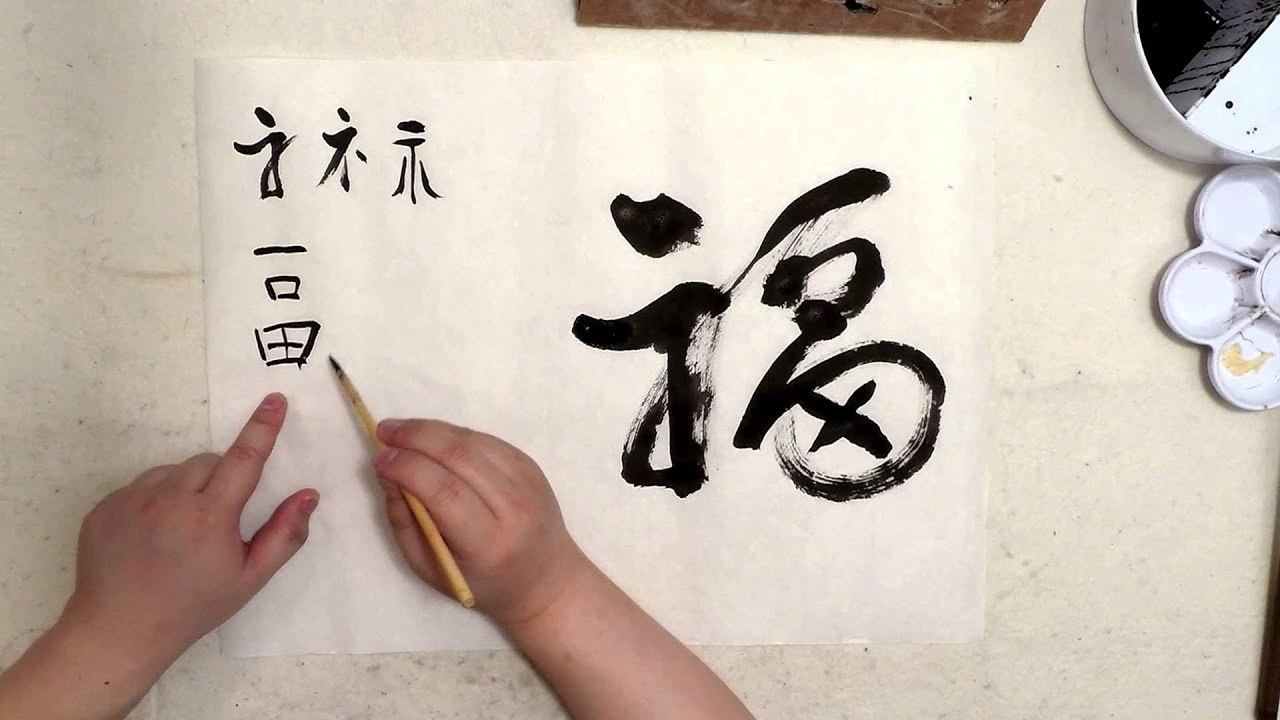 礻 礻 示
一
口
田
福